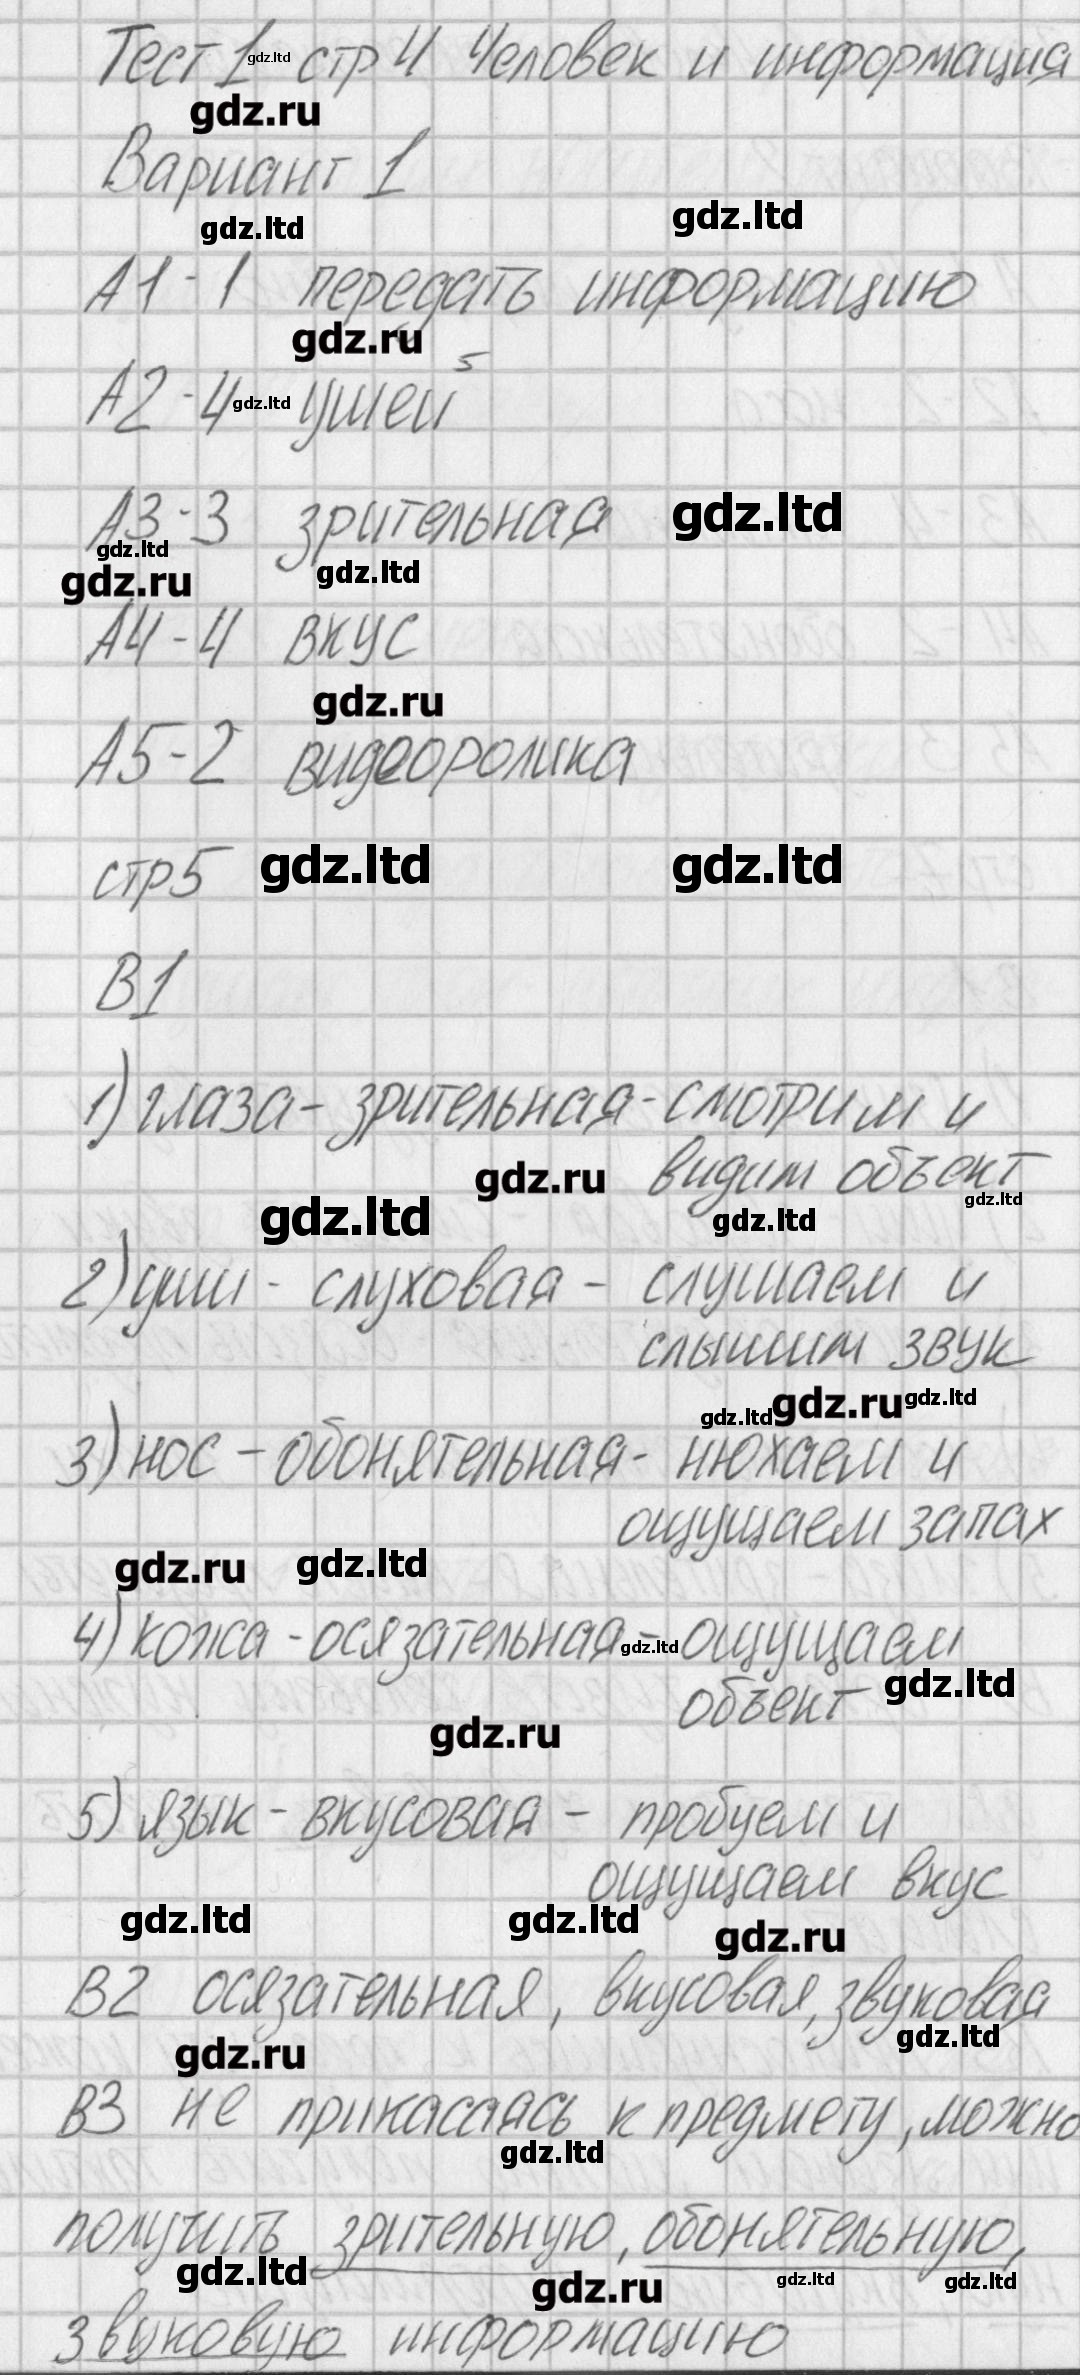 Тест 1 gdz.ltd стр 4 Человек и информация
gdz.ru
Вариант 1
gdz.ltd gdz.ltd
А1-1 передать информацию
gdz.ru
А2-4 gdz.ltd ушей
А3-3 зрительная gdz.ltd
gdz.ltd
gdz.ru gdz.ltd
А4-4 вкус
gdz.ru
А5-2 видеоролика
стр 5 gdz.ltd gdz.ltd
В1
1) глаза - зрительная - смотрим и
gdz.ru видим объект
gdz.ltd gdz.ltd gdz.ltd
2) уши - слуховая - слушаем и
слышим звук
gdz.ltd gdz.ru gdz.ltd
3) нос - обонятельная - нюхаем и
ощущаем запах
gdz.ru gdz.ltd
4) кожа - осязательная gdz.ltd - ощущаем
объект gdz.ltd
gdz.ru
5) язык - вкусовая - пробуем и
ощущаем вкус
gdz.ltd gdz.ltd gdz.ru
В2 осязательная, вкусовая, звуковая
gdz.ru gdz.ltd
В3 не прикасаясь к предмету, можно
gdz.ltd
получить зрительную, обонятельную,
gdz.ltd gdz.ru gdz.ltd gdz.ltd
звуковую информацию